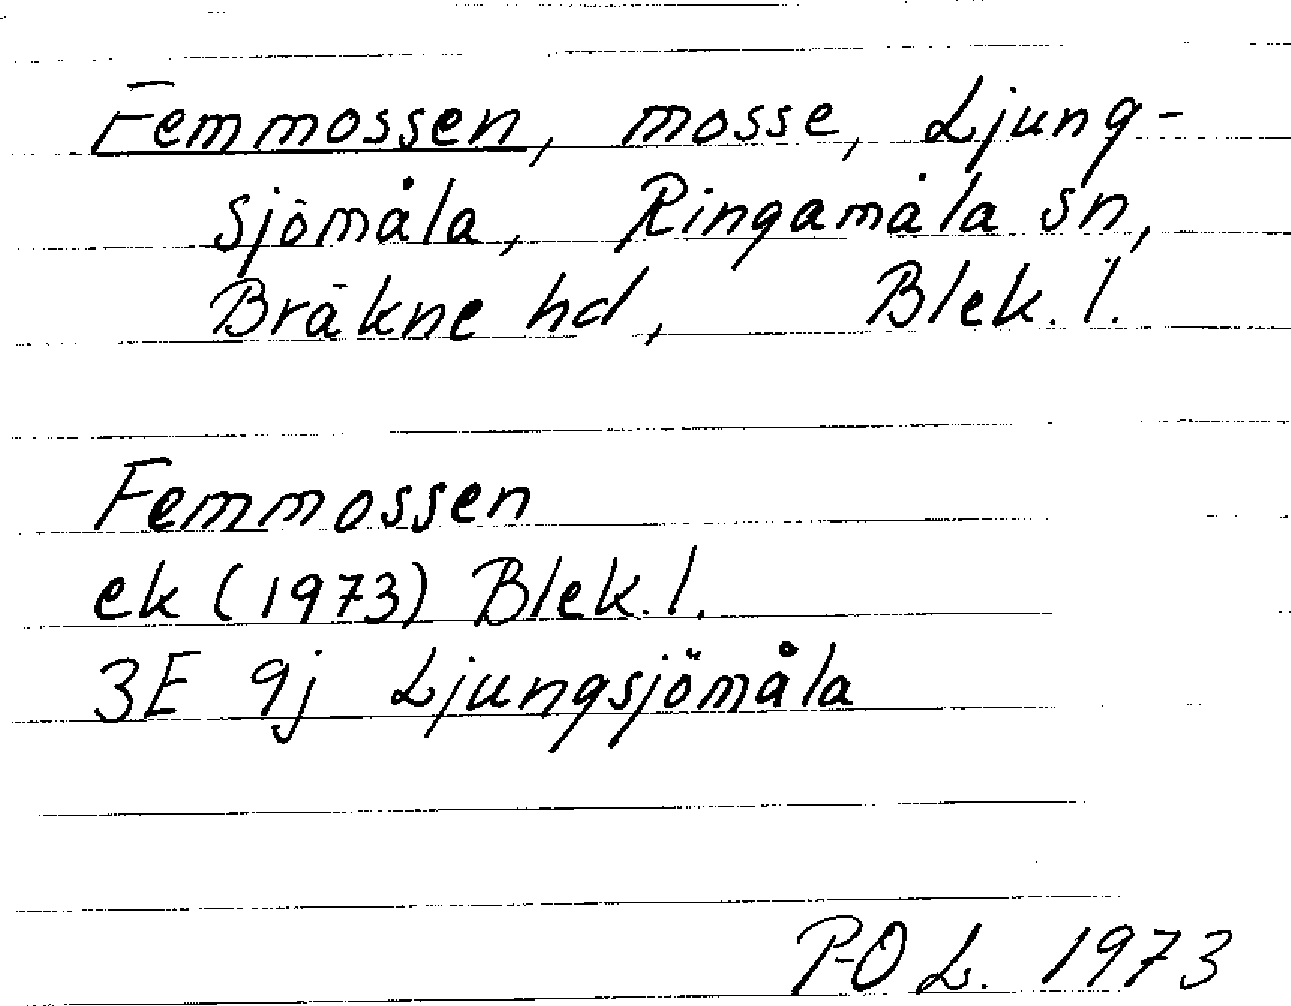 Femmossen, mosse, Ljung-
sjömåla, Ringamåla sn,
Bräkne hd, Blek. l.
Femmossen
ek (1973) Blek. l.
3E 9j Ljungsjömåla
P-O L. 1973